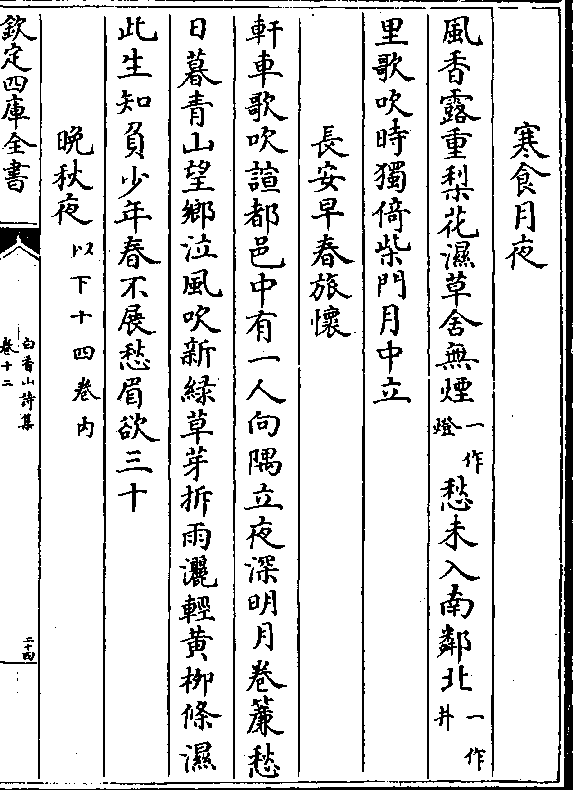 寒食月夜
風香露重梨花濕草舍無煙一作燈愁未入南鄰北一作井
里歌吹時獨倚柴門月中立
長安早春旅懷
軒車歌吹諠都邑中有一人向隅立夜深明月卷簾愁
日暮青山望鄉泣風吹新綠草芽拆雨灑輕黄柳條濕
此生知負少年春不展愁眉欲三十
晚秋夜以下十四卷内
欽定四庫全書
白香山詩集
卷十二
二十四